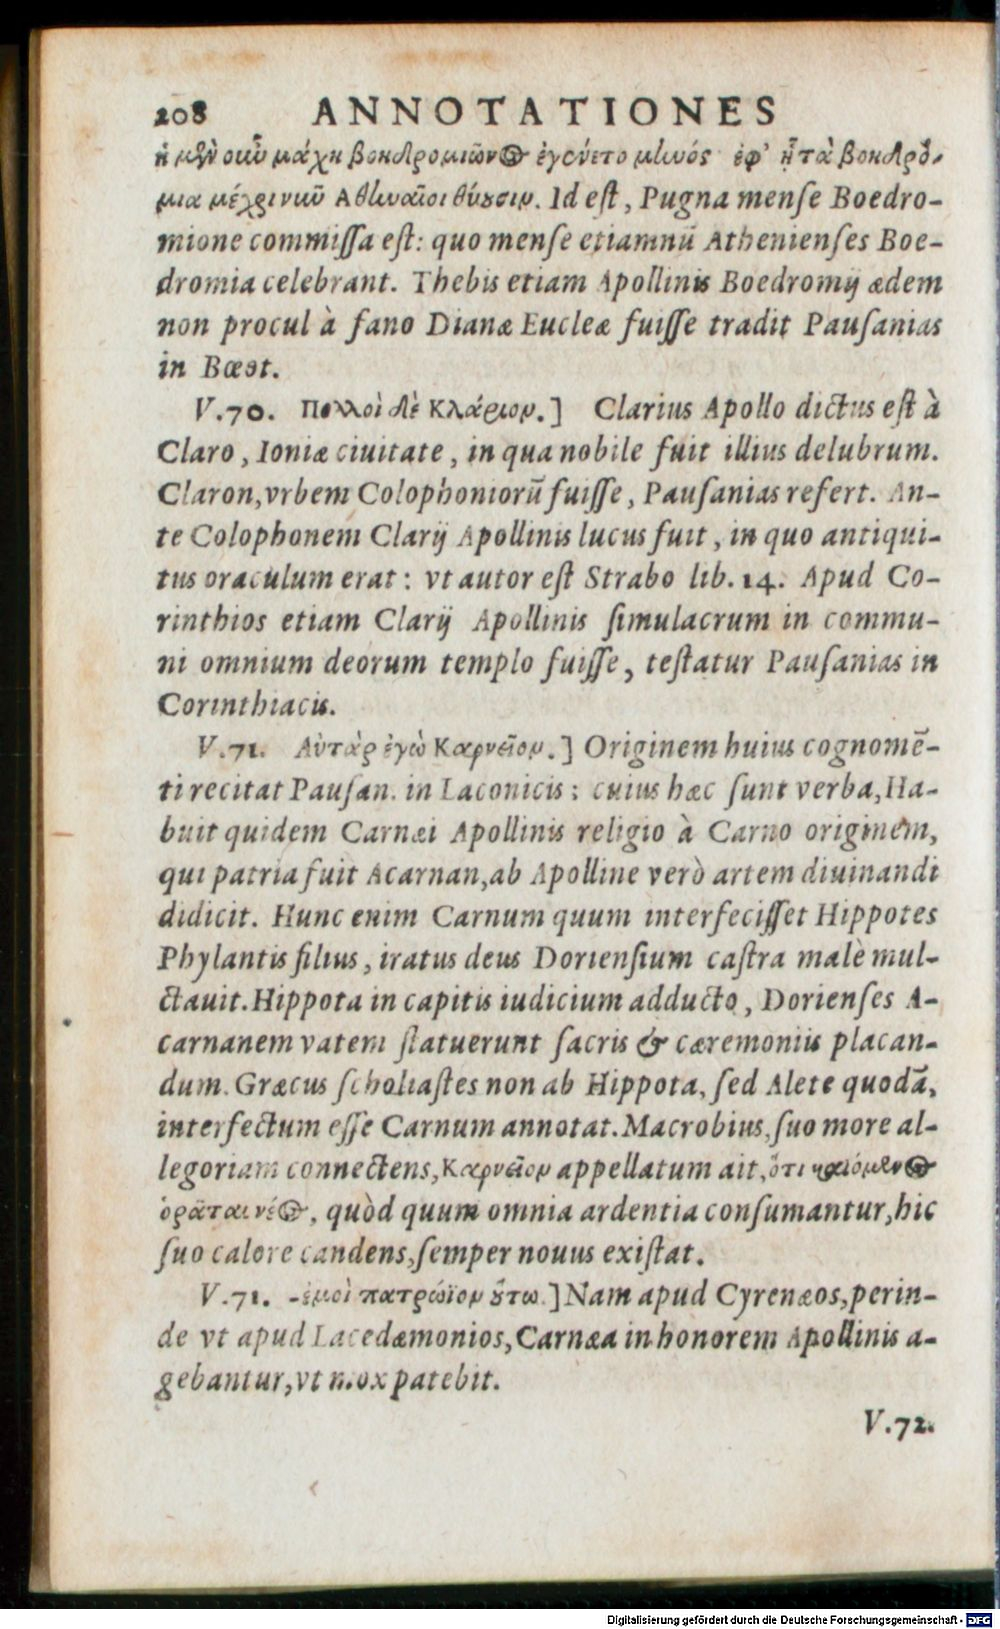 208 ANNOTATIONES
ἡ μὲν οὖν μάχη βοηδρομιῶνος ἐγένετο μηνός· ἐφ' ᾗ τὰ βοηδρό-
μια μέχρι νῦν Ἀθηναῖοι θύουσιν. Id eſt, Pugna menſe Boedro-
mione commiſſa eſt: quo menſe etiamnũ Athenienſes Boe-
dromia celebrant. Thebis etiam Apollinis Boedromij ædem
non procul à fano Dianæ Eucleæ fuiſſe tradit Pauſanias
in Bœot.
V.70. Πολλοὶ δὲ Κλάριον.] Clarius Apollo dictus eſt à
Claro, Ioniæ ciuitate, in qua nobile fuit illius delubrum.
Claron, vrbem Colophoniorũ fuiſſe, Pauſanias refert. An-
te Colophonem Clarij Apollinis lucus fuit, in quo antiqui-
tus oraculum erat: vt autor eſt Strabo lib. 14. Apud Co-
rinthios etiam Clarij Apollinis ſimulacrum in commu-
ni omnium deorum templo fuiſſe, teſtatur Pauſanias in
Corinthiacis.
V.71. Αὐτὰρ ἐγὼ Καρνεῖον.] Originem huius cognomẽ-
ti recitat Pauſan. in Laconicis: cuius hæc ſunt verba, Ha-
buit quidem Carnæi Apollinis religio à Carno originem,
qui patria fuit Acarnan, ab Apolline verò artem diuinandi
didicit. Hunc enim Carnum quum interfeciſſet Hippotes
Phylantis filius, iratus deus Dorienſium caſtra malè mul-
ctauit. Hippota in capitis iudicium adducto, Dorienſes A-
carnanem vatem ſtatuerunt ſacris & cæremoniis placan-
dum. Græcus ſcholiaſtes non ab Hippota, ſed Alete quodã,
interfectum eſſe Carnum annotat. Macrobius, ſuo more al-
legoriam connectens, Καρνεῖον appellatum ait, ὅτι καιόμενος
ὁρᾶται νέος, quòd quum omnia ardentia conſumantur, hic
ſuo calore candens, ſemper nouus exiſtat.
V.71. -ἐμοὶ πατρώϊον οὕτω.] Nam apud Cyrenæos, perin-
de vt apud Lacedæmonios, Carnæa in honorem Apollinis a-
gebantur, vt mox patebit.
V.72.
Digitalisierung gefördert durch die Deutsche Forschungsgemeinschaft - DFG